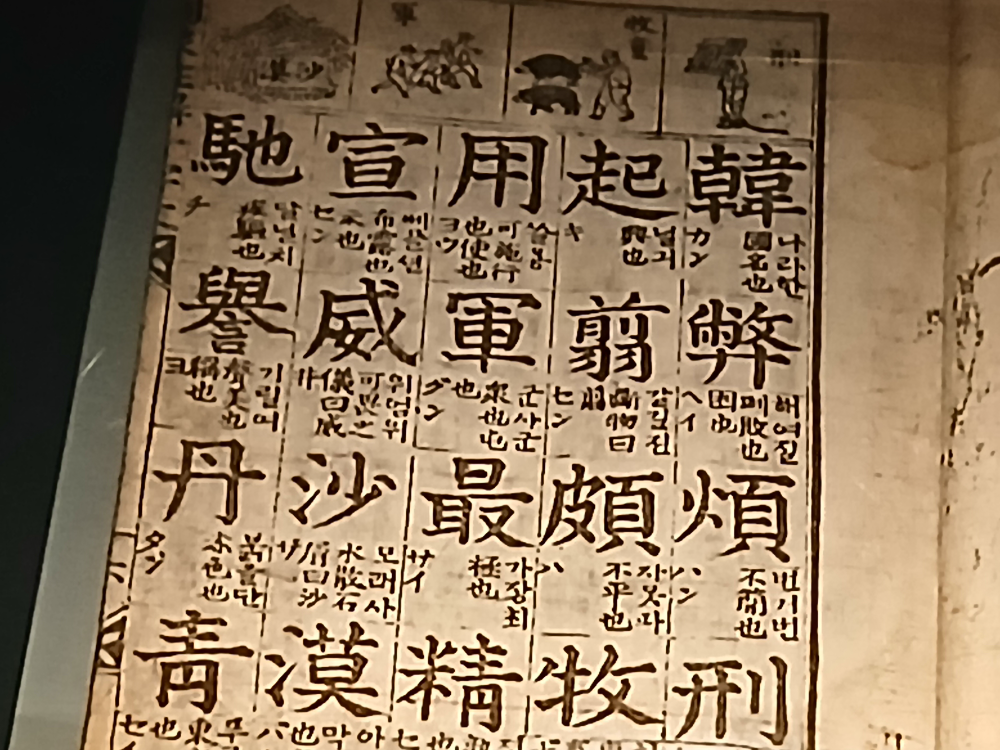 刑
韓
나라한
國名也
カン
弊
해여진
敗也
困也
ヘイ
煩
번기번
不簡也
ハン
刑
牧畜
起
닐긔
興也
キ
翦
갈길전
斷物曰
翦
セン
頗
자못파
不平也
ハ
牧
軍
用
쓸용
可施行
也使也
ヨウ
軍
군사군
衆也屯
也
グン
最
가장최
極也
サイ
精
沙漠
宣
베플션
布露也
セン
威
위엄위
可畏之
儀曰威
沙
모래사
水散石
屑曰沙
サ
漠
馳
달닐치
疾驅也
チ
譽
기릴여
聲美也
稱也
ヨ
丹
붉을단
赤色也
タン
靑